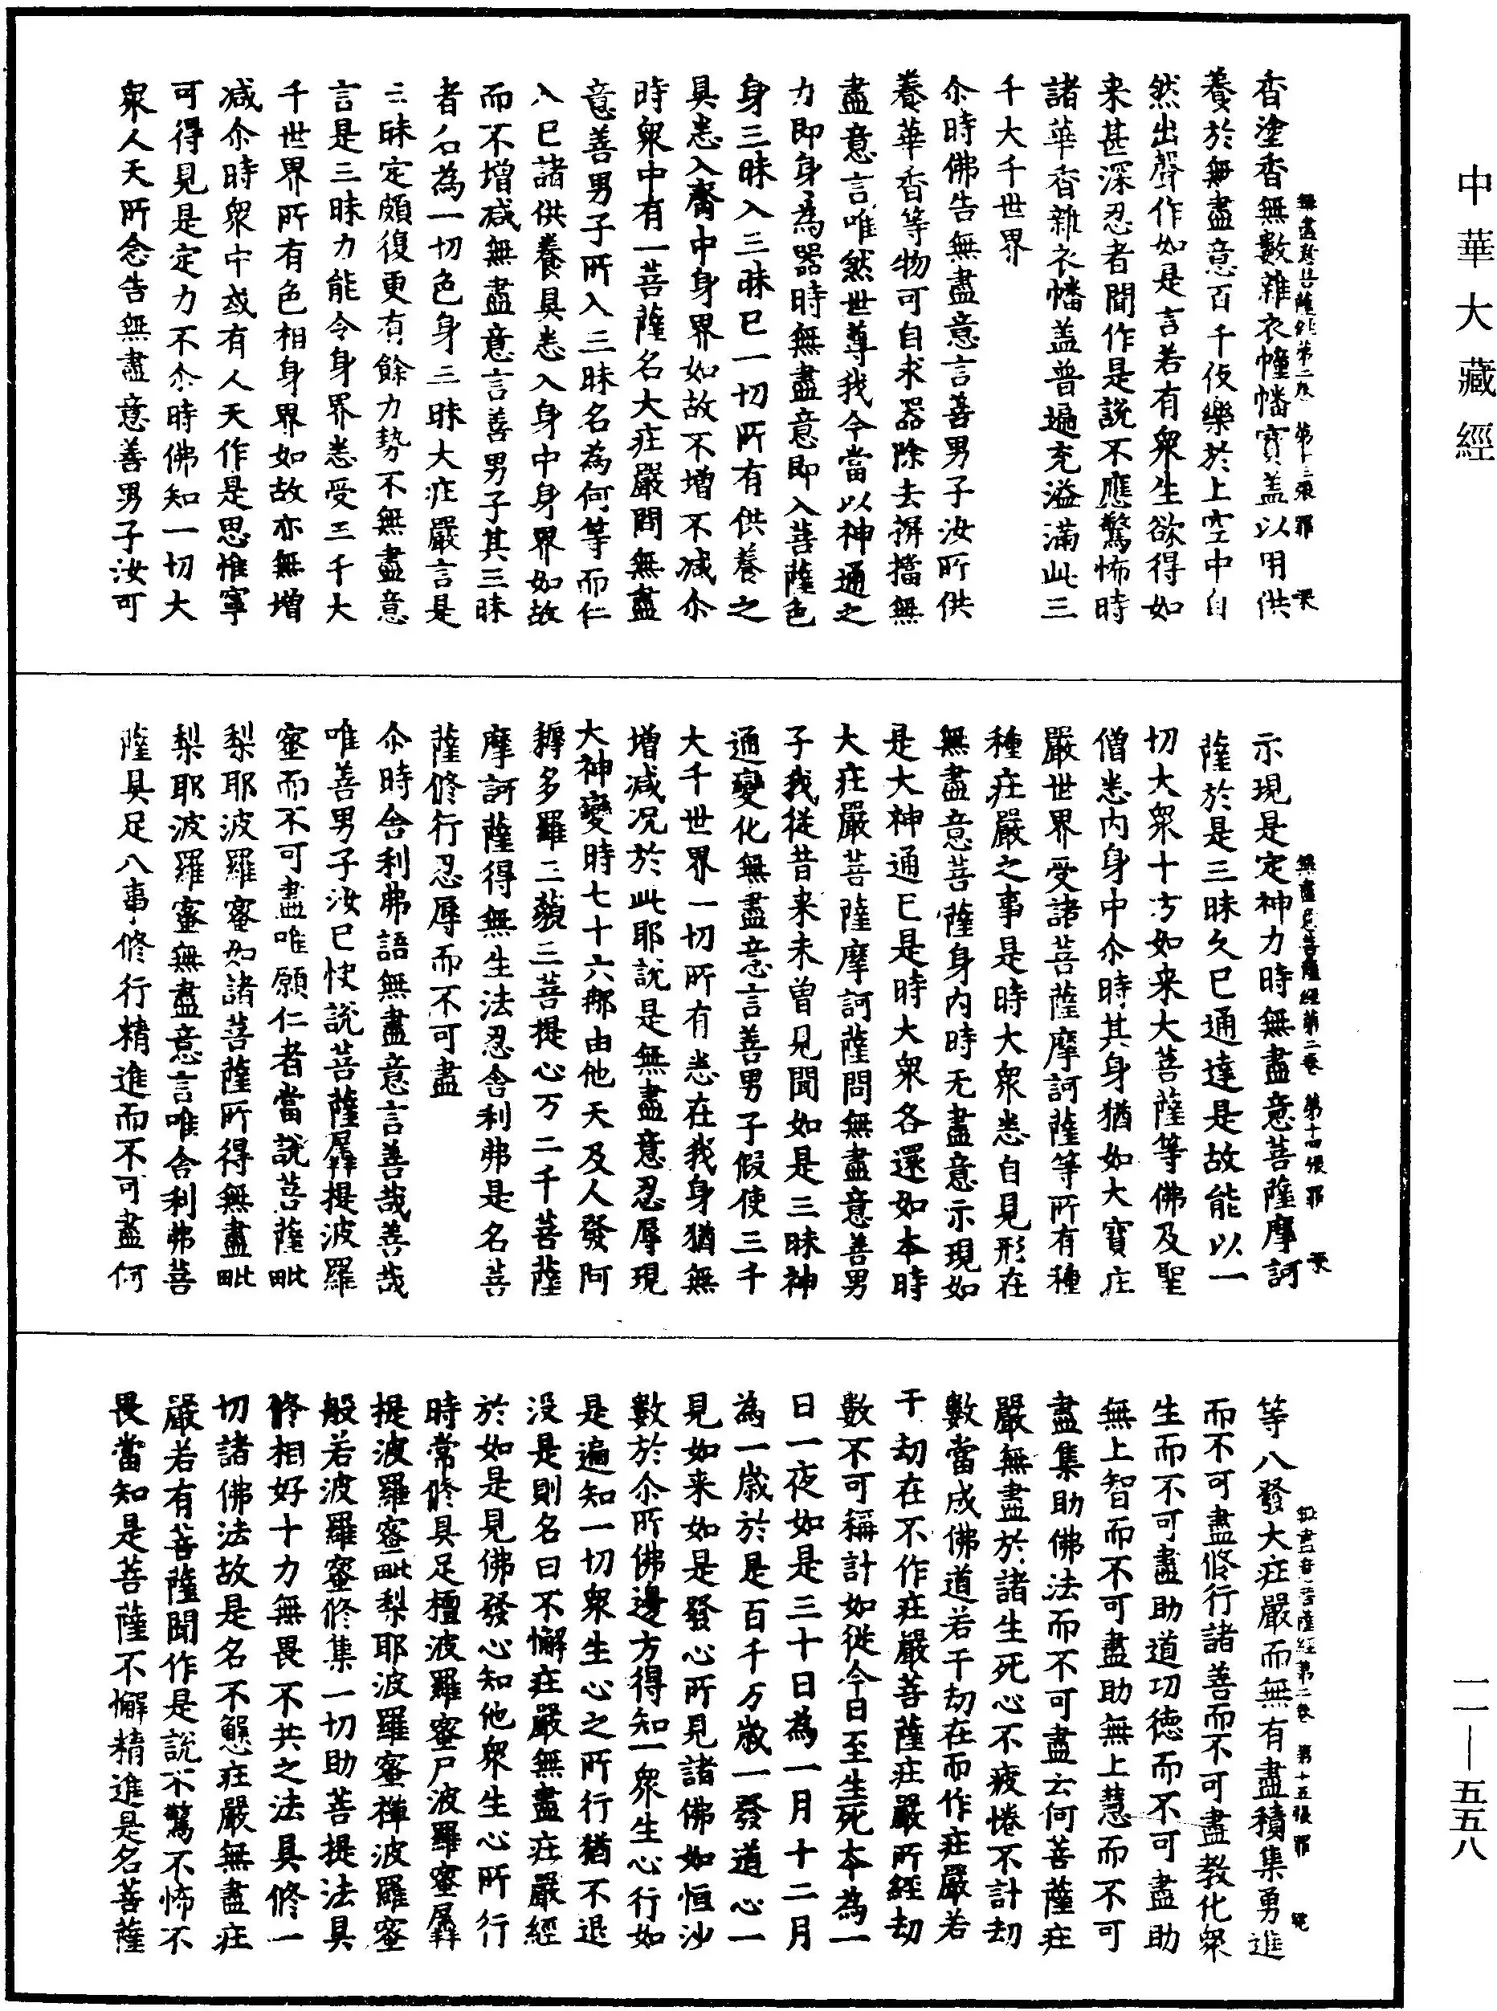 中華大藏經
一一—五五八
香塗香無數雜衣幢幡寶盖以用供
養於無盡意百千伎樂於上空中自
然出聲作如是言若有衆生欲得如
来甚深忍者聞作是說不應驚怖時
諸華香雜衣幡盖普遍充溢滿此三
千大千世界
尒時佛告無盡意言善男子汝所供
養華香等物可自求器除去摒擋無
盡意言唯然世尊我今當以神通之
力即身為器時無盡意即入菩薩色
身三昧入三昧已一切所有供養之
具悉入齎中身界如故不增不减尒
時衆中有一菩薩名大疰嚴問無盡
意善男子所入三昧名為何等而仁
入已諸供養具悉入身中身界如故
而不增减無盡意言善男子其三昧
者名為一切色身三昧大疰嚴言是
三昧定頗復更有餘力勢不無盡意
言是三昧力能令身界悉受三千大
千世界所有色相身界如故亦無增
减尒時衆中或有人天作是思惟寧
可得見是定力不尒時佛知一切大
衆人天所念告無盡意善男子汝可
無盡意菩薩經第二卷 第十三張 罪
示現是定神力時無盡意菩薩摩訶
薩於是三昧久已通達是故能以一
切大衆十方如来大菩薩等佛及聖
僧悉内身中尒時其身猶如大寶疰
嚴世界受諸菩薩摩訶薩等所有種
種疰嚴之事是時大衆悉自見形在
無盡意菩薩身内時无盡意示現如
是大神通已是時大衆各還如本時
大疰嚴菩薩摩訶薩問無盡意善男
子我從昔来未曾見聞如是三昧神
通變化無盡意言善男子假使三千
大千世界一切所有悉在我身猶無
增减况於此耶說是無盡意忍辱現
大神變時七十六那由他天及人發阿
耨多羅三藐三菩提心万二千菩薩
摩訶薩得無生法忍舍利弗是名菩
薩修行忍辱而不可盡
尒時舍利弗語無盡意言善哉善哉
唯善男子汝已快說菩薩羼提波羅
蜜而不可盡唯願仁者當說菩薩毗
梨耶波羅蜜如諸菩薩所得無盡毗
梨耶波羅蜜無盡意言唯舍利弗菩
薩具足八事修行精進而不可盡何
無盡意菩薩經第二卷 第十四張 罪
等八發大疰嚴而無有盡積集勇進
而不可盡修行諸善而不可盡教化衆
生而不可盡助道功德而不可盡助
無上智而不可盡助無上慧而不可
盡集助佛法而不可盡云何菩薩疰
嚴無盡於諸生死心不疲惓不計劫
數當成佛道若干劫在而作疰嚴若
干劫在不作疰嚴菩薩疰嚴所經劫
數不可稱計如從今日至生死本為一
日一夜如是三十日為一月十二月
為一歲於是百千万歲一發道心一
見如来如是發心所見諸佛如恒沙
數於尒所佛邊方得知一衆生心行如
是遍知一切衆生心之所行猶不退
沒是則名曰不懈疰嚴無盡疰嚴經
於如是見佛發心知他衆生心所行
時常修具足檀波羅蜜尸波羅蜜羼
提波羅蜜毗梨耶波羅蜜禪波羅蜜
般若波羅蜜修集一切助菩提法具
修相好十力無畏不共之法具修一
切諸佛法故是名不懈疰嚴無盡疰
嚴若有菩薩聞作是說不驚不怖不
畏當知是菩薩不懈精進是名菩薩
無盡意菩薩經第二卷 第十五張 罪